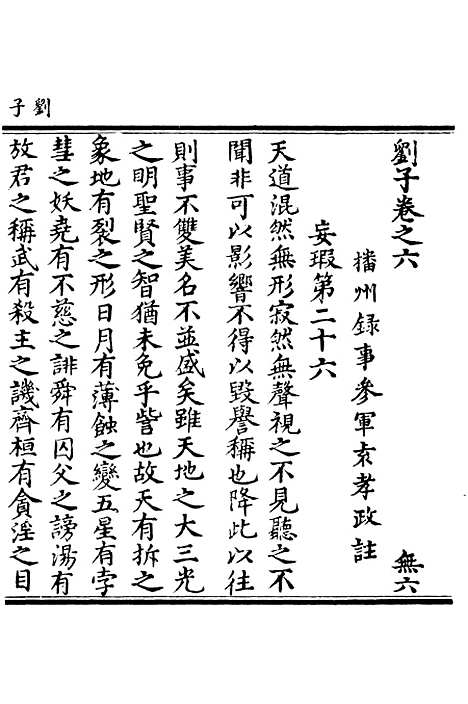 劉子
劉子卷之六 無六
播州録事參軍袁孝政註
妄瑕第二十六
天道混然無形寂然無聲視之不見聽之不
聞非可以影響不得以毀譽稱也降此以往
則事不雙美名不並盛矣雖天地之大三光
之明聖賢之智猶未免乎訾也故天有拆之
象地有裂之形日月有薄蝕之變五星有孛
彗之妖堯有不慈之誹舜有囚父之謗湯有
放君之稱武有殺主之譏齊桓有貪淫之目